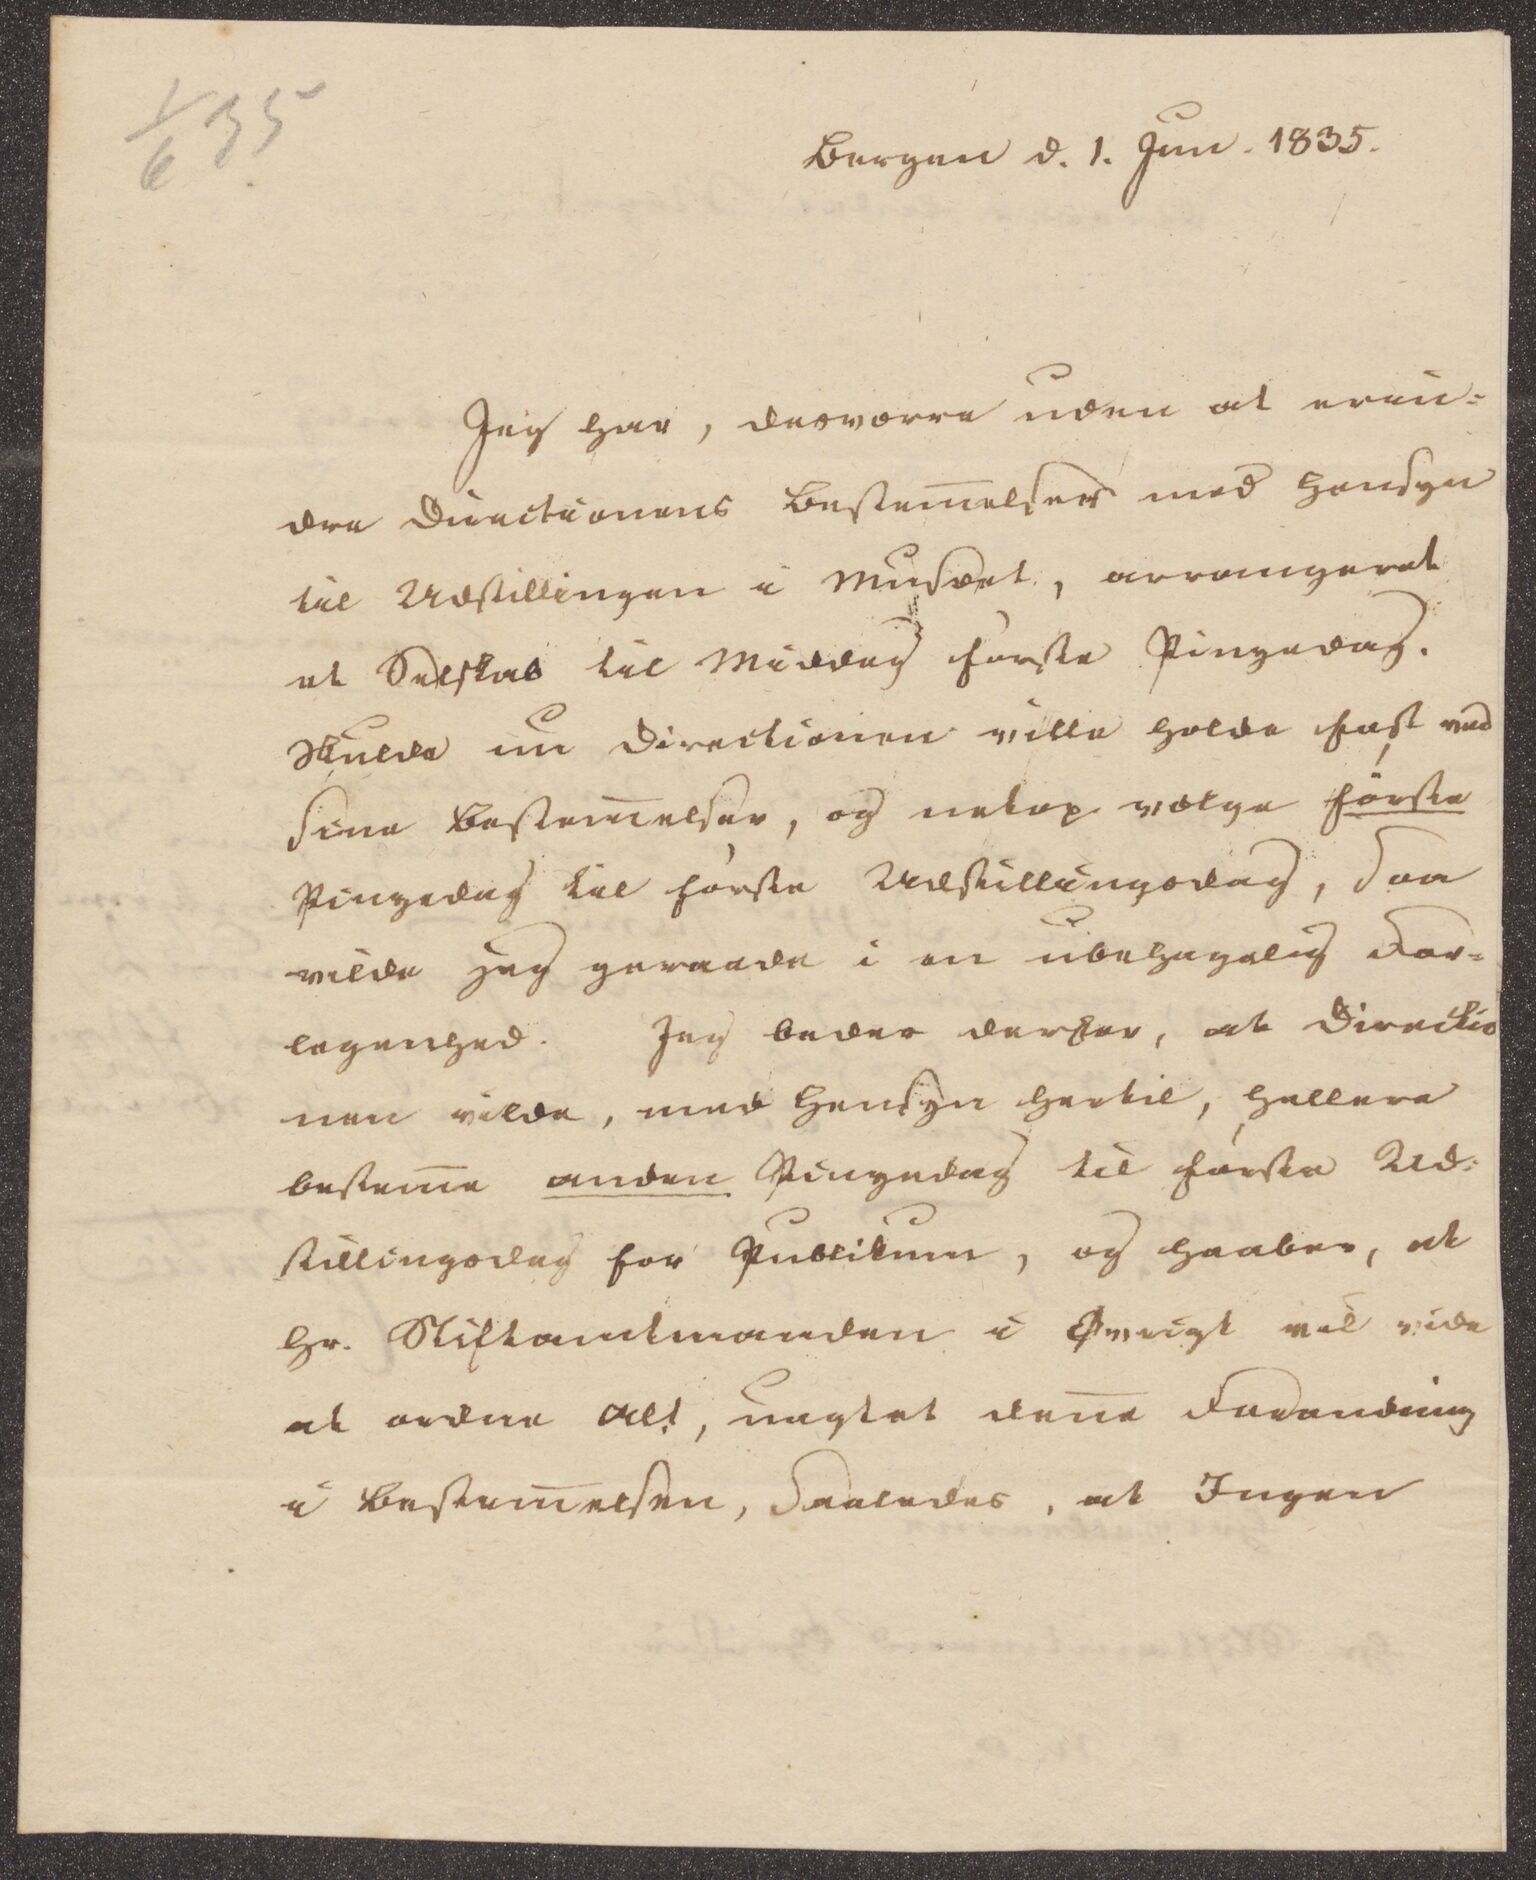 1/6 35
Bergen d. 1. Jun. 1835.
Jeg har, desværre uden at erin-
dre Directionens Bestem̄elser med Hensyn
til Udstillingen i Museet, arrangeret
et Selskab til Middag første Pingedag.
Skulde nu Directionen ville holde fast ved
sine Bestem̄elser, og netop vælge første
Pingedag til første Udstillingsdag, saa
vilde jeg geraade i en ubehagelig For-
legenhed. Jeg beder derfor, at Directio
nen vilde, med Hensyn hertil, hellere
bestem̄e anden Pingedag til første Ud-
stillingsdag for Publikum, og haaber, at
Hr. Stiftamtmanden i Øvrigt vil vide
at ordne Alt, uagtet den̄e Forandring
i Bestem̄elsen, saaledes, at Ingen